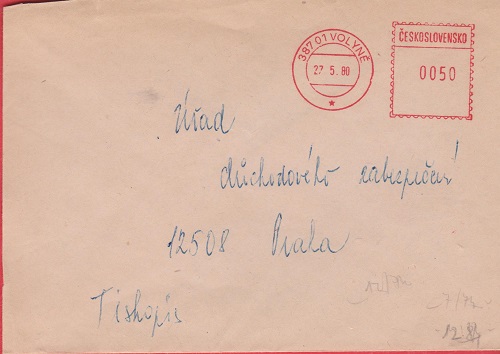 387 01 VOLYNĚ
27. 5. 80
ČESKOSLOVENSKO
0050
Úřad
důchodového zabezpečení
12508 Praha
Tiskopis